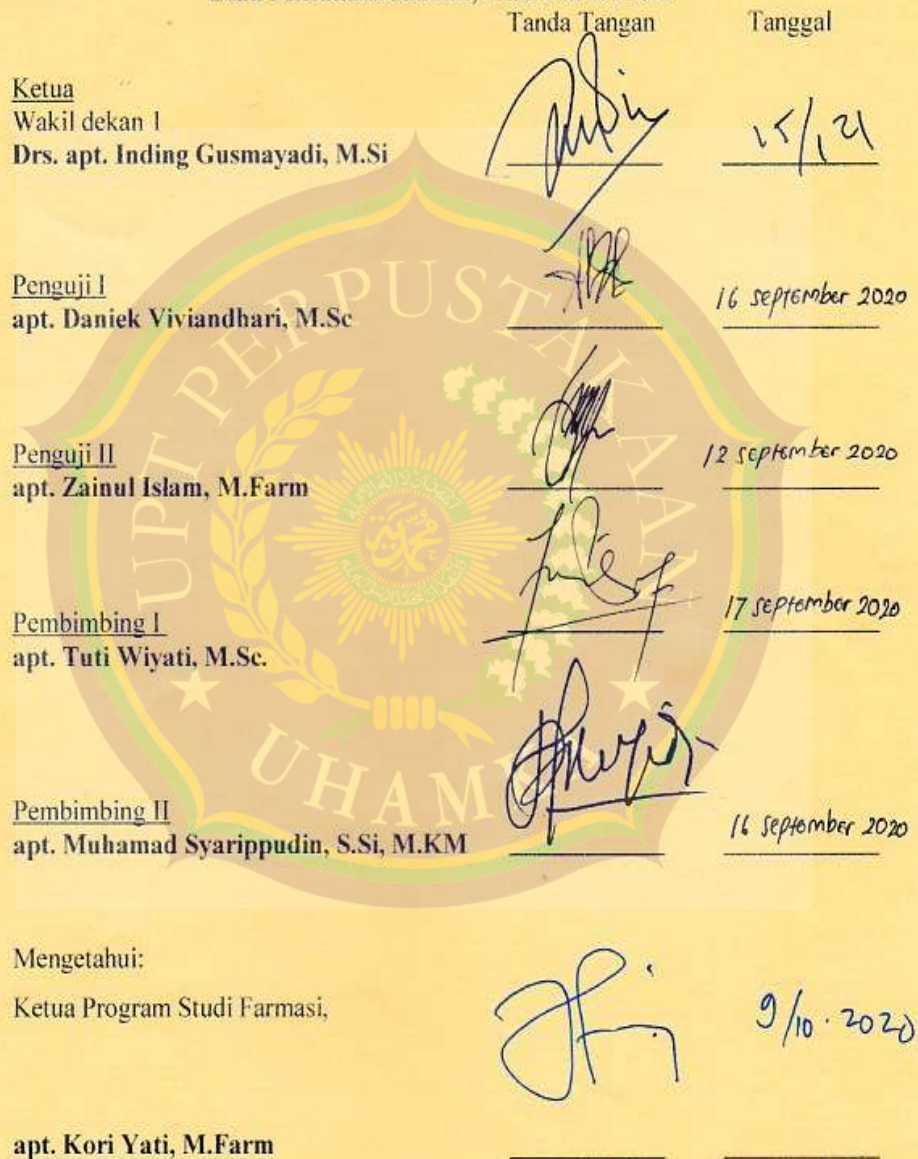 Tanda Tangan Tanggal
Ketua
Wakil dekan I
Drs. apt. Inding Gusmayadi, M.Si
15/1 21
Penguji I
apt. Daniek Viviandhari, M.Sc
16 september 2020
Penguji II
apt. Zainul Islam, M.Farm
12 september 2020
Pembimbing I
apt. Tuti Wiyati, M.Sc.
17 september 2020
Pembimbing II
apt. Muhamad Syarippudin, S.Si, M.KM
16 september 2020
Mengetahui:
Ketua Program Studi Farmasi,
9/10 . 2020
apt. Kori Yati, M.Farm
UPT PERPUSTAKAAN
UHAMKA